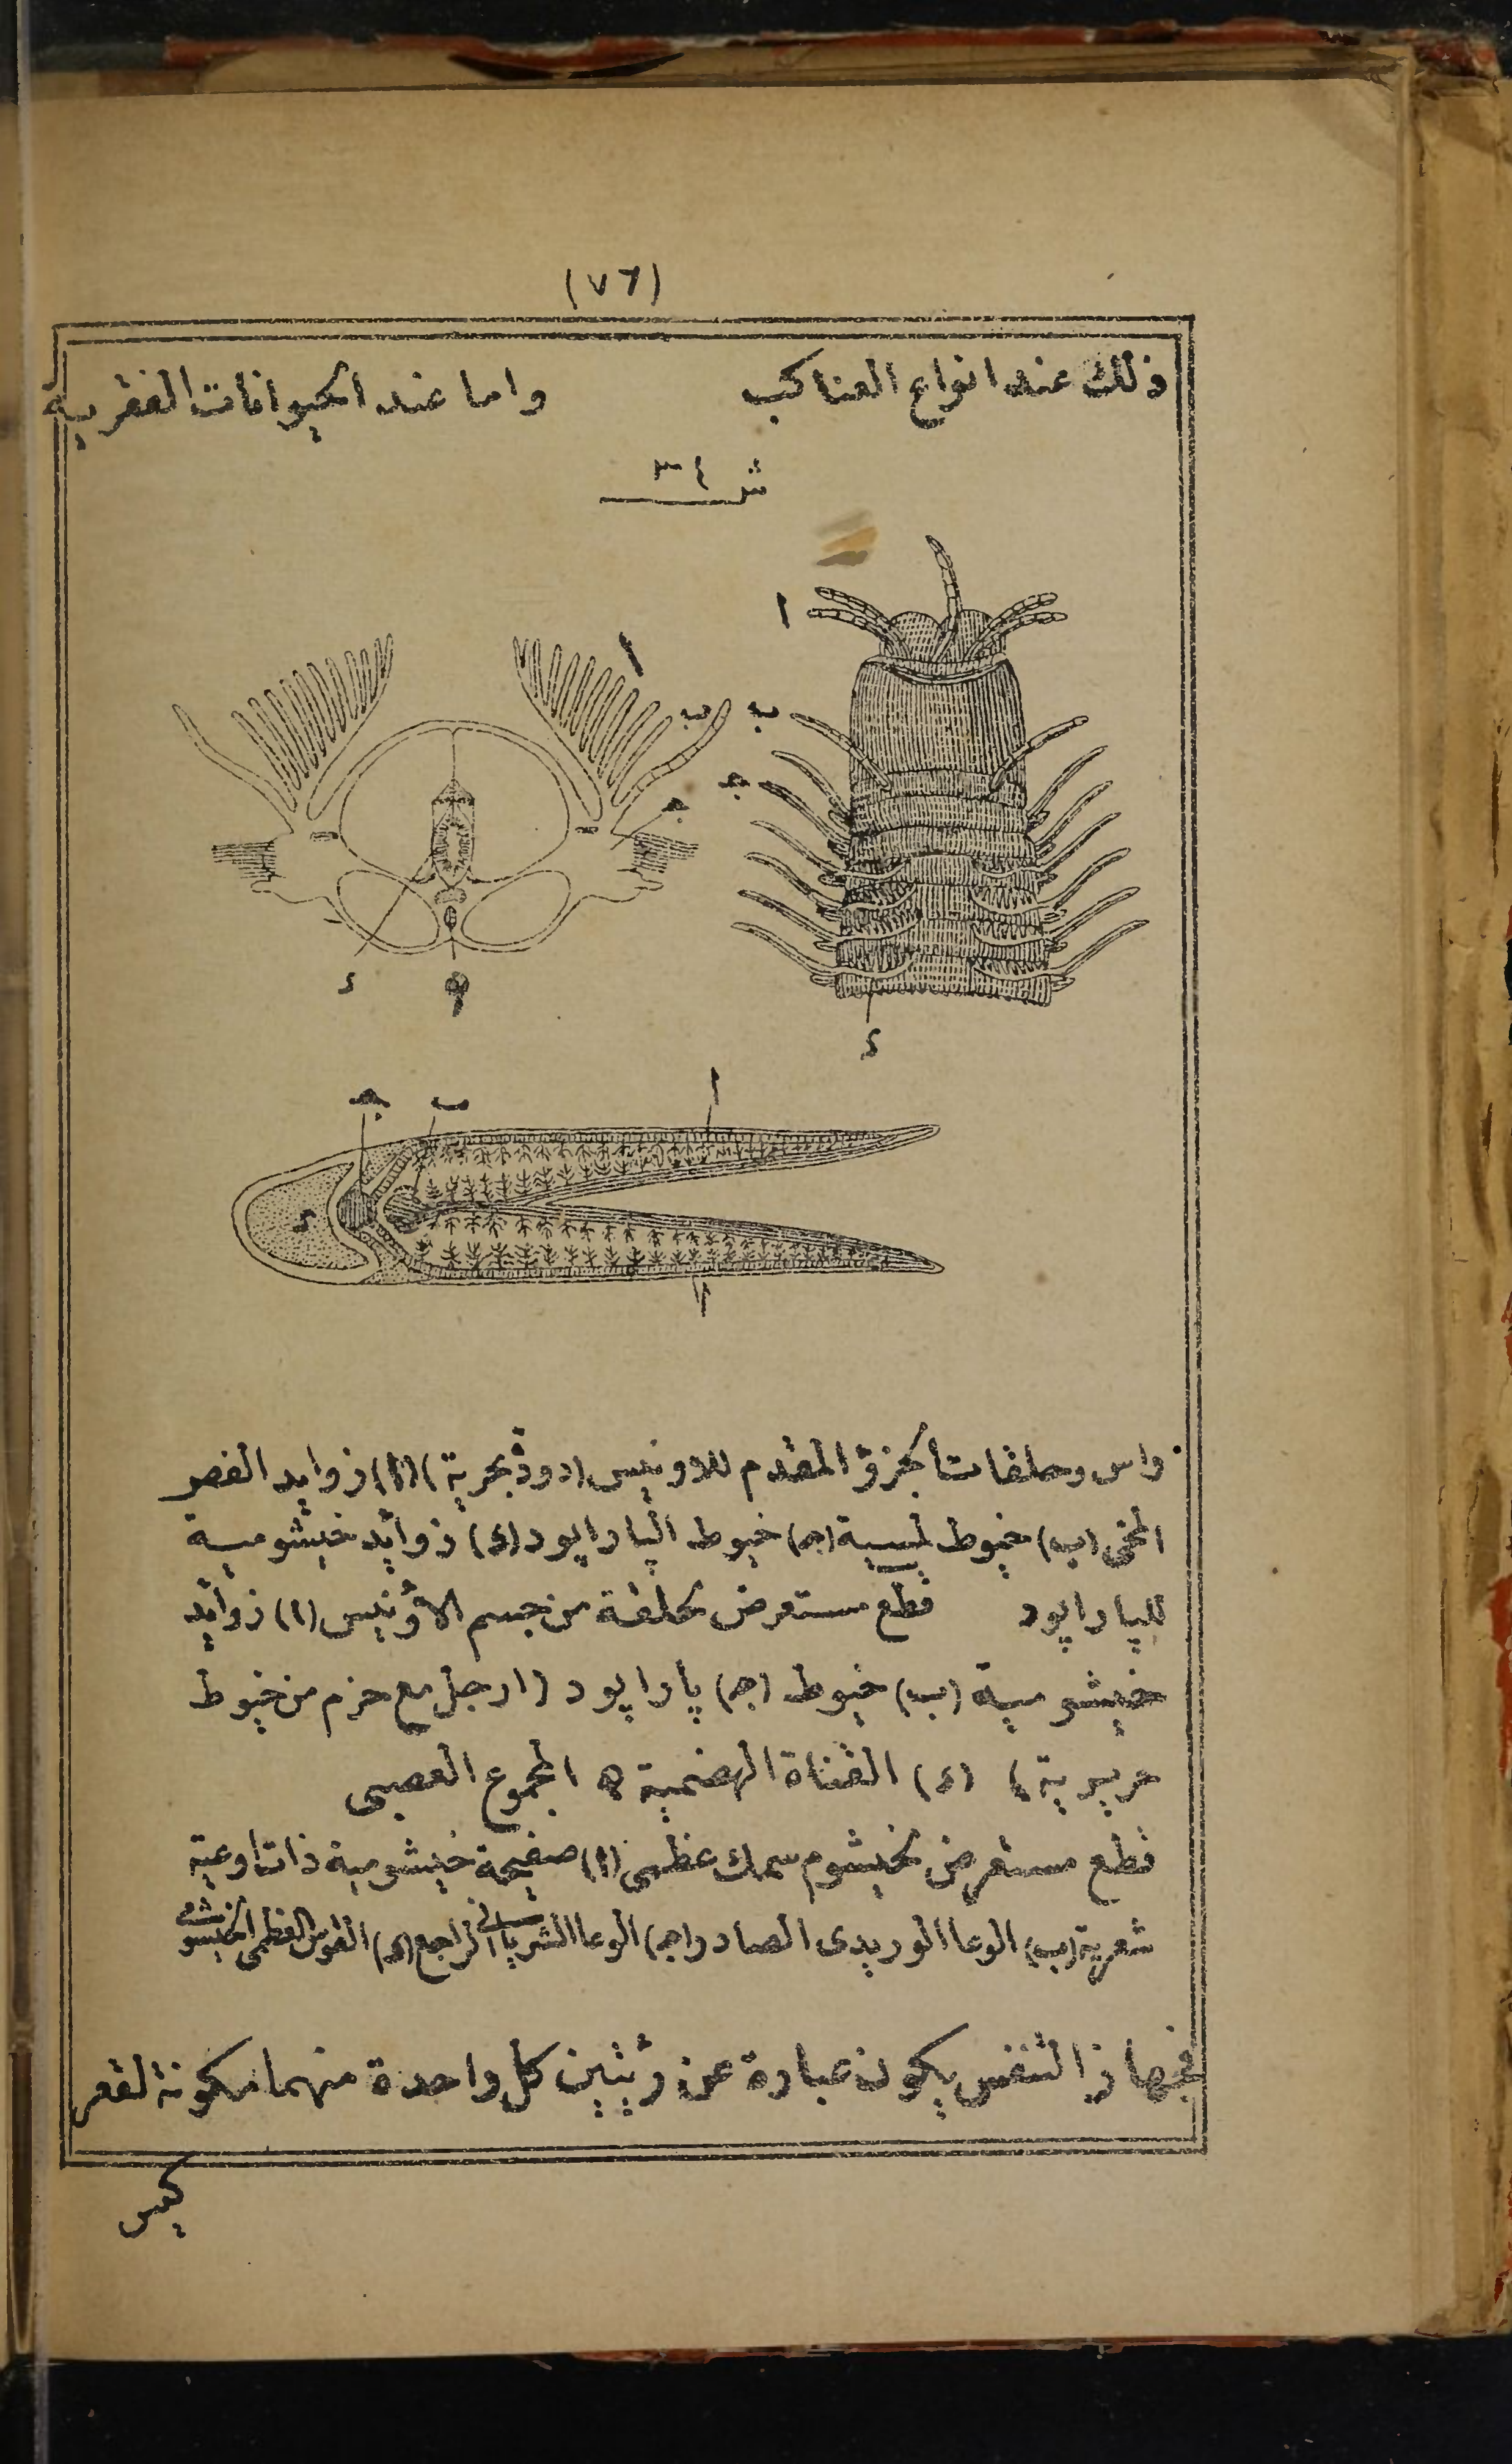 (٧٦)
ذلك عند انواع العناكب واما عند الحيوانات الفقريه
شـ ٣٤
ا
ا
ب ب
ج ج
د ه
د
ج ب ا
د
ا
راس وحلقات الجزؤ المقدم للاونيس (دودة بحرية) (ا) زوايد الفصر
المخى (ب) خيوط لمسية (ج) خيوط الپاراپود (د) زوايد خيشومية
للپاراپود قطع مستعرض لحلقة من جسم الاؤنيس (ا) زوايد
خيشومية (ب) خيوط (ج) پاراپود (ارجل مع حزم من خيوط
حريرية) (د) القناة الهضمية ه المجموع العصبى
قطع مستعرض لخيشوم سمك عظمى (ا) صفيحة خيشومية ذات اوعية
شعرية (ب) الوعا الوريدى الصادر (ج) الوعا الشريانى الراجع (د) القوس العظمى الخيشومى
فجهاز التنفس يكون عبارة عن رئتين كل واحدة منهما مكونة لقعر
كيس